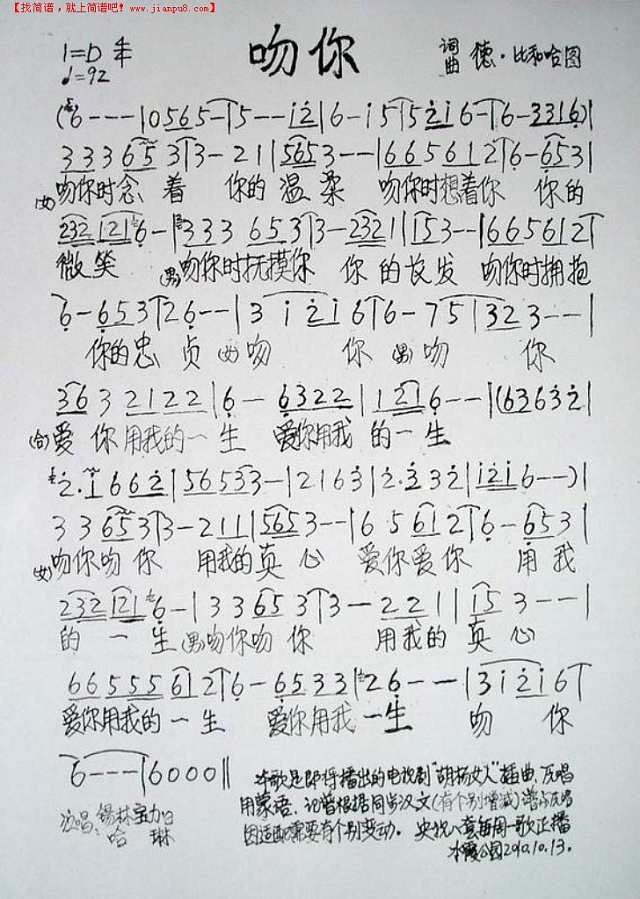 【找简谱，就上简谱吧! www.jianpu8.com】
1=D 4/4
♩=92
吻你
词
曲 德·比和哈图
(6 - - - | 0 5 6 5 5 - | 5 - - i 2 | 6 - i 5 | 5 2 i 6 - | 6 - 3 3 1 6) |
3 3 3 6 5 3 | 3 - 2 1 | 5 6 5 3 - - | 6 6 5 6 1 2 | 6 - 6 5 3 |
(女)吻你时念着 你的温柔 吻你时想着你 你的
2 3 2 1 2 1 6 - | 3 3 3 6 5 3 | 3 - 2 3 2 1 | 1 5 3 - - | 6 6 5 6 1 2 |
微笑 (男)吻你时抚摸你 你的长发 吻你时拥抱
6 - 6 5 3 | 2 6 - - | 3 i 2 i 6 | 6 - 7 5 | 3 2 3 - - |
你的忠贞 (女)吻 你 (男)吻 你
3 6 3 2 1 2 2 | 6 - 6 3 2 2 | 1 2 1 6 - - | (6 3 6 3 2 |
(合)爱你用我的一生 爱你用我的一生
2 . i 6 6 2 | 5 6 5 3 3 - | 2 1 6 3 | 2 . 3 3 2 | i 2 i 6 - -) |
3 3 6 5 3 | 3 - 2 1 1 | 5 6 5 3 - - | 6 5 6 1 2 | 6 - 6 5 3 |
(女)吻你吻你 用我的真心 爱你爱你 用我
2 3 2 1 2 1 6 - | 3 3 6 5 3 | 3 - 2 2 1 | 1 5 3 - - |
的一生 (男)吻你吻你 用我的真心
6 6 5 5 5 6 1 2 | 6 - 6 5 3 3 | 2 6 - - | 3 i 2 i 6 |
爱你用我的一生 爱你用我一生 吻 你
6 - - - | 6 0 0 0 ‖
本歌是即将播出的电视剧"胡杨女人"插曲，原唱
用蒙语，记谱根据同步汉文(有个别增减)谱与原唱
因适配需要有个别变动。央视八套每周一歌正播
演唱：锡林宝力日
哈 琳
水霞公园2010.10.13.